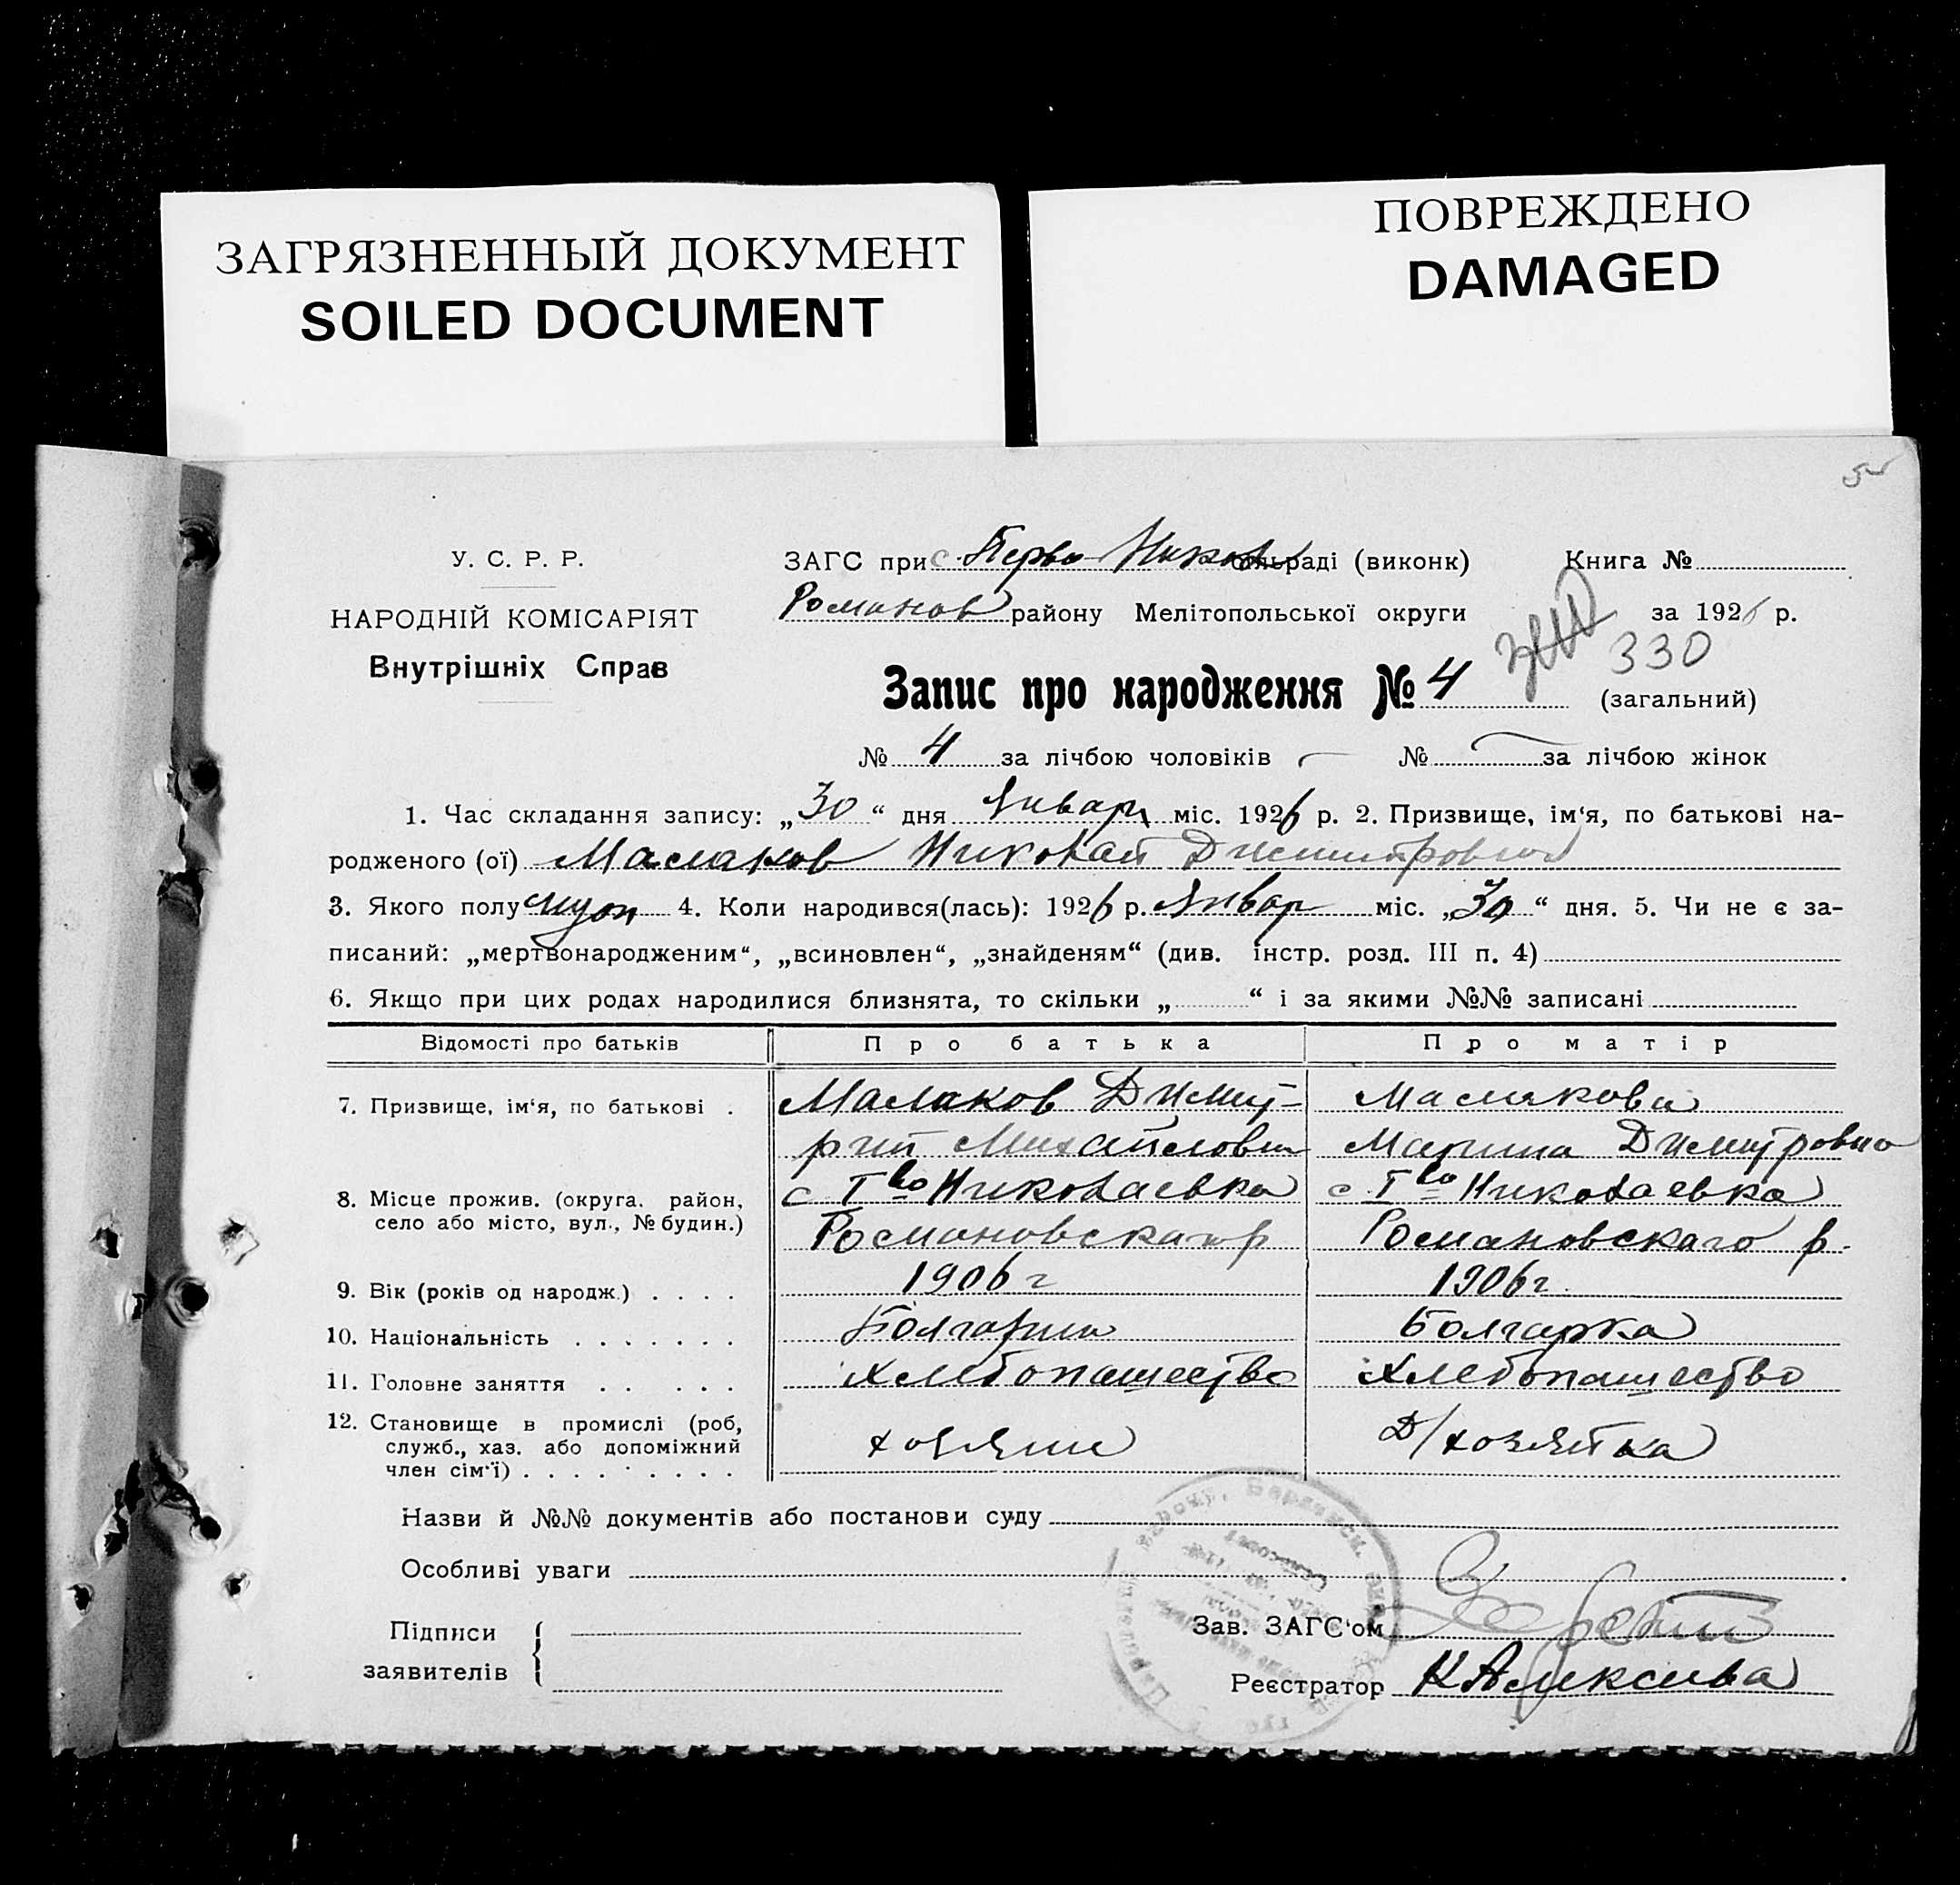 ЗАГРЯЗНЕННЫЙ ДОКУМЕНТ
SOILED DOCUMENT
ПОВРЕЖДЕНО
DAMAGED
У. С. Р. Р.
НАРОДНІЙ КОМІСАРІЯТ
Внутрішніх Справ
ЗАГС при с. Перво-Никол сільраді (виконк)
Романов району Мелітопольської округи
Книга №
за 1926 р.
330
Запис про народження № 4
(загальний)
№ 4 за лічбою чоловіків № за лічбою жінок
1. Час складання запису: „30“ дня Января міс. 1926 р. 2. Призвище, ім‘я, по батькові на-
родженого (ої) Малаков Николай Димитрович
3. Якого полу муж 4. Коли народився(лась): 1926 р. Январ міс. „30“ дня. 5. Чи не є за-
писаний: „мертвонародженим“, „всиновлен“, „знайденям“ (див. інстр. розд. III п. 4)
6. Якщо при цих родах народилися близнята, то скільки „ “ і за якими №№ записані
Відомості про батьків Про батька Про матір
7. Призвище, ім‘я, по батькові . Малаков Димит- Малакова
рий Михайлович Марина Димитровна
8. Місце прожив. (округа. район, с Iво Николаевка с. Iво Николаевка
село або місто, вул., № будин.) Романовскаго р Романовскаго р.
9. Вік (років од народж.) . . . . 1906 г 1906 г.
10. Національність . . . . . . . Болгарин Болгарка
11. Головне заняття . . . . . Хлебопашество Хлебопашество
12. Становище в промислі (роб,
служб., хаз. або допоміжний хозяин Д/хозяйка
член сім‘ї) . . . . . . . . .
Назви й №№ документів або постанови суду
Особливі уваги
Підписи
заявителів
Зав. ЗАГС‘ом
Реєстратор К Алексеева